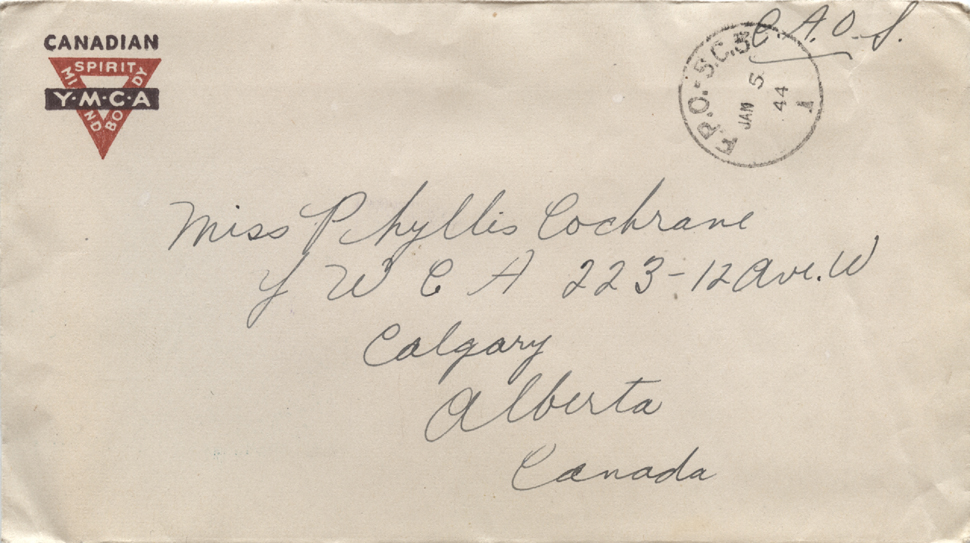 CANADIAN
SPIRIT
MIND
BODY
Y·M·C·A
C.A.O.S.
F.P.O.-S.C.5
JAN 5
44
1
Miss Phyllis Cochrane
Y W C A 223-12 Ave. W
Calgary
Alberta
Canada